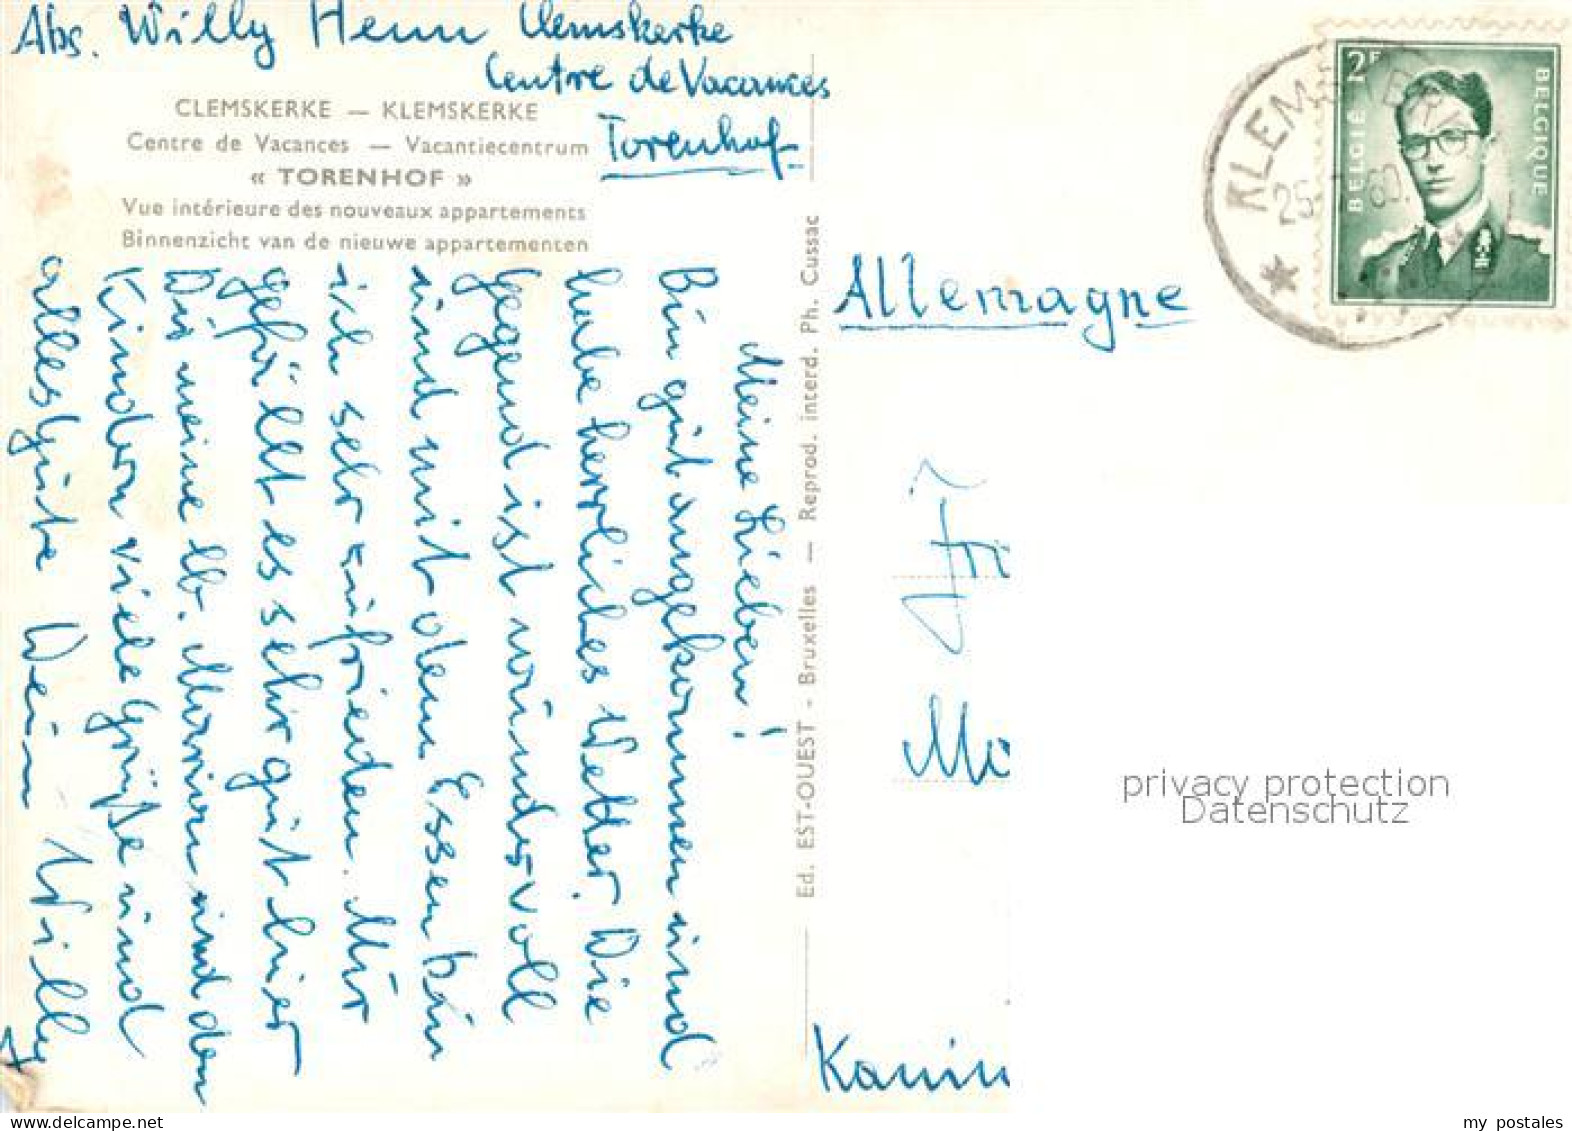 Abs. Willy Henn Clemskerke
Centre de Vacances
Torenhof
CLEMSKERKE — KLEMSKERKE
Centre de Vacances — Vacantiecentrum
« TORENHOF »
Vue intérieure des nouveaux appartements
Binnenzicht van de nieuwe appartementen
Meine Lieben!
Bin gut angekommen und
habe herrliches Wetter. Die
Gegend ist wundervoll
und mit dem Essen bin
ich sehr zufrieden. Mir
gefällt es sehr gut hier
Dir meine lb. Marion und den
Kindern viele Grüße und
alles Gute Dein Willy
Ed. EST-OUEST - Bruxelles — Reprod. interd. Ph. Cussac
2F
BELGIE
BELGIQUE
KLEMSKERKE
60
Allemagne
privacy protection
Datenschutz
my postales